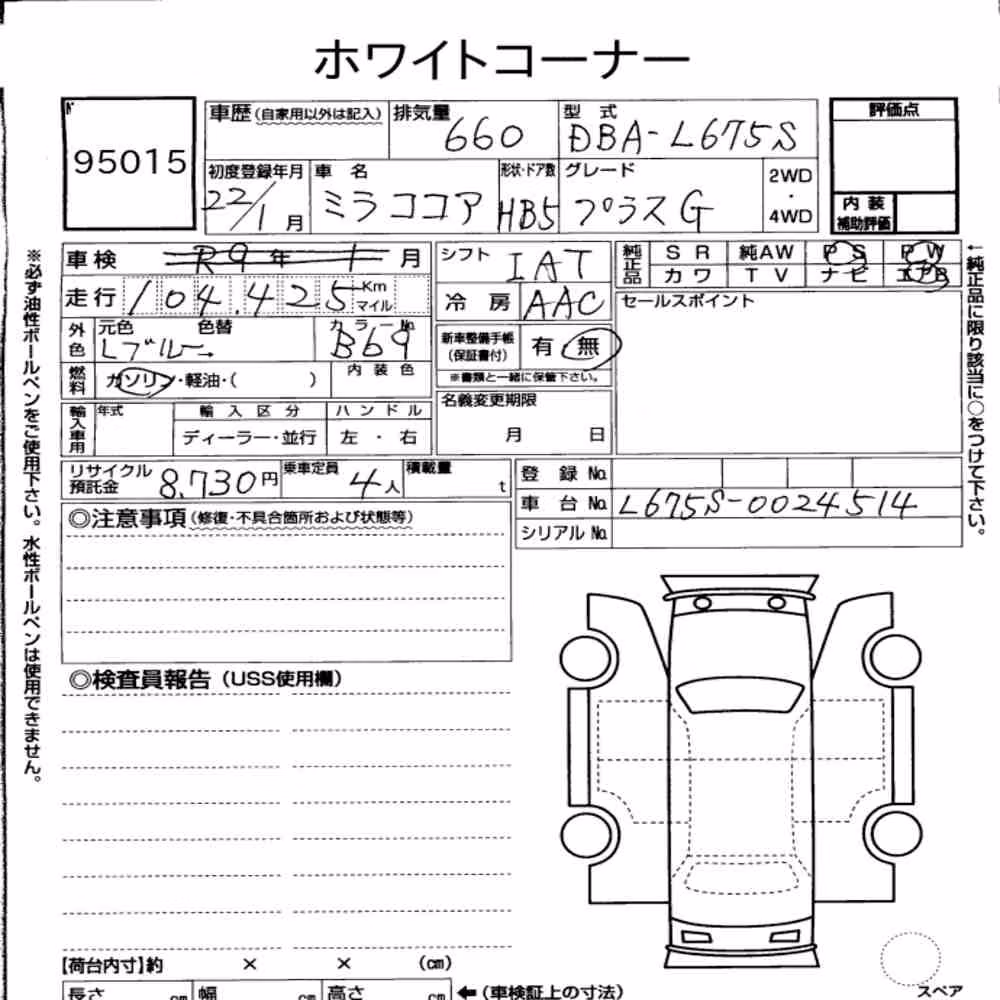 ホワイトコーナー
95015
車歴 (自家用以外は記入) 排気量 660 型式 DBA-L675S 評価点
初度登録年月 22/1月 車名 ミラココア 形状・ドア数 HB5 グレード プラスG 2WD・4WD 内装補助評価
車検 R9年1月 シフト IAT 純正品 SR 純AW PS PW
カワ TV ナビ エアB
走行 104,425 Km マイル 冷房 AAC セールスポイント
外色 元色 Lブルー 色替 カラーNo. B69 新車整備手帳(保証書付) 有 無
※書類と一緒に保管下さい。
燃料 ガソリン・軽油・( ) 内装色
名義変更期限 月 日
輸入車用 年式 輸入区分 ハンドル
ディーラー・並行 左・右
リサイクル預託金 8,730円 乗車定員 4人 積載量 t
登録No.
車台No. L675S-0024514
シリアルNo.
◎注意事項 (修復・不具合箇所および状態等)
◎検査員報告 (USS使用欄)
【荷台内寸】約 × × (cm)
長さ cm 幅 cm 高さ cm ←(車検証上の寸法)
スペア
※必ず油性ボールペンをご使用下さい。水性ボールペンは使用できません。
←純正品に限り該当に○をつけて下さい。